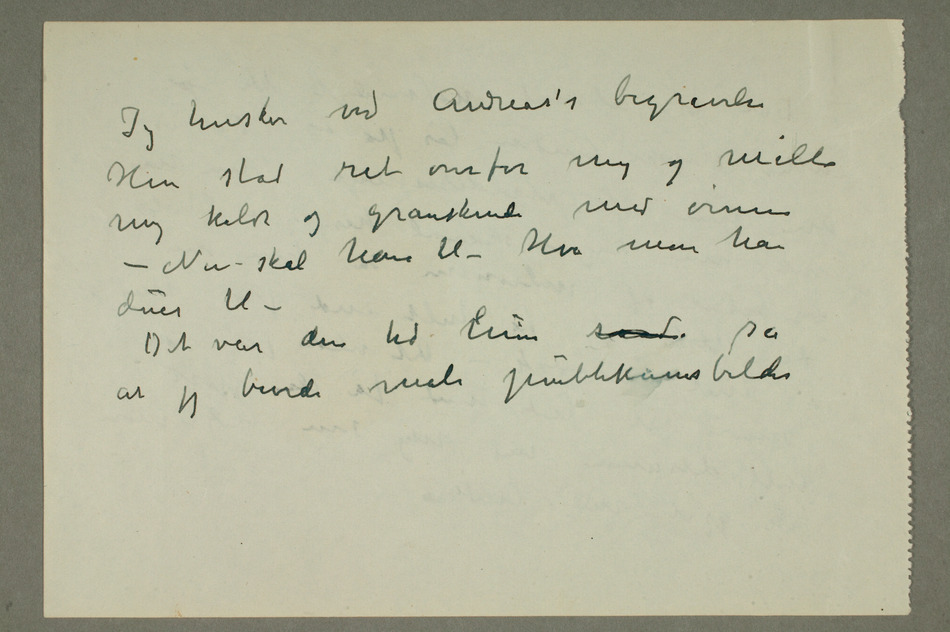 Jeg husker ved Andreas's begravelse
Hun stod ret overfor mig og målte
mig koldt og granskende med øinene
– Nu skal han til – Hva mon han
duer til –
Det var den tid hun sa
at jeg burde male publikumsbilder